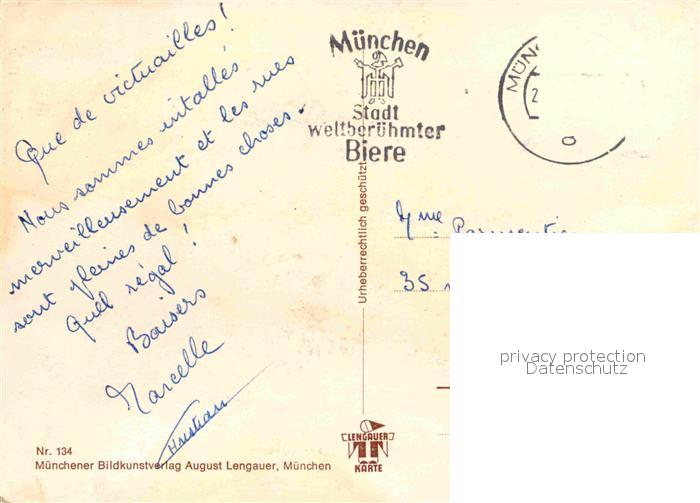 Que de victuailles !
Nous sommes intallés
merveilleusement et les rues
sont pleines de bonnes choses.
Quel régal !
Baisers
Marcelle
München
Stadt
weltberühmter
Biere
MÜN
2
Urheberrechtlich geschützt
Mme
35
privacy protection
Datenschutz
LENGAUER
KARTE
Nr. 134
Münchener Bildkunstverlag August Lengauer, München